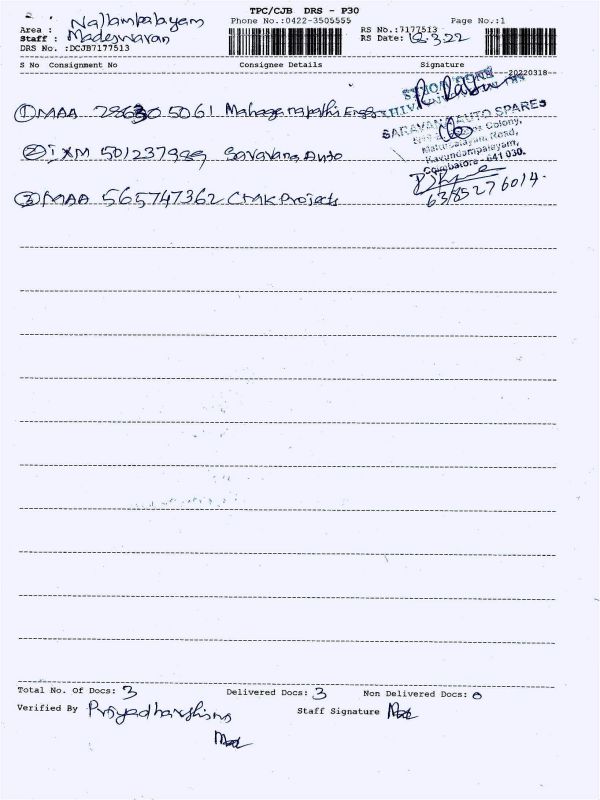 TPC/CJB DRS - P30
Area : Nallampalayam
Phone No.:0422-3505555
Page No.:1
Staff : Madeswaran
RS No.:7177513
DRS No. :DCJB7177513
RS Date: 18.3.22
S No Consignment No Consignee Details Signature
20220318
① MAA 5061 Mahaganapathi Engg
SARAVANA AUTO SPARES
② IXM 501237989 Saravana Auto
Kavundampalayam,
Coimbatore - 641 030.
③ MAA 565747362 CMK Projects
6385276014.
Total No. Of Docs: 3 Delivered Docs: 3 Non Delivered Docs: 0
Verified By Priyadharshini Staff Signature